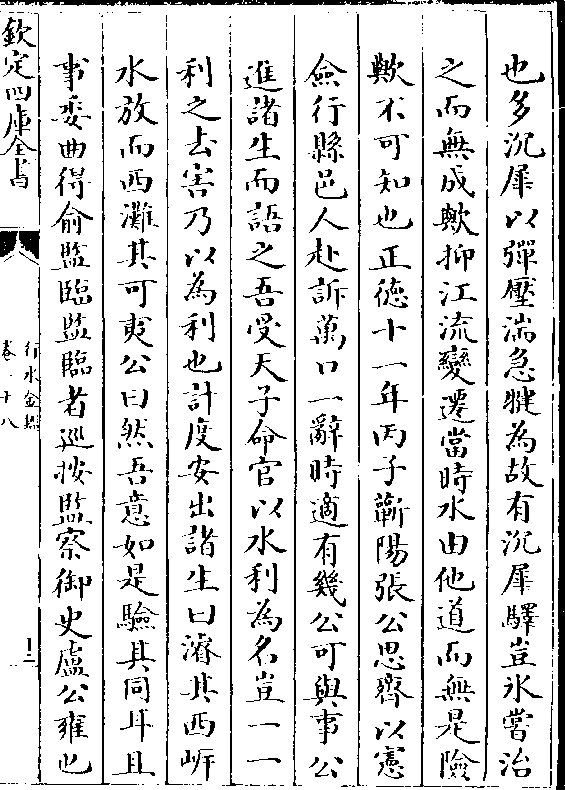 也多沉犀以彈壓湍急犍為故有沉犀驛豈氷嘗治
之而無成歟抑江流變遷當時水由他道而無是險
歟不可知也正徳十一年丙子蘄陽張公思齊以憲
僉行縣邑人赴訴萬口一辭時適有幾公可與事公
進諸生而語之吾受天子命官以水利為名豈一一
利之去害乃以為利也計度安出諸生曰濬其西㟁
水放而西灘其可夷公曰然吾意如是驗其同耳且
事委曲得俞監臨監臨者巡按監察御史盧公雍也
欽定四庫全書
行水金鑑